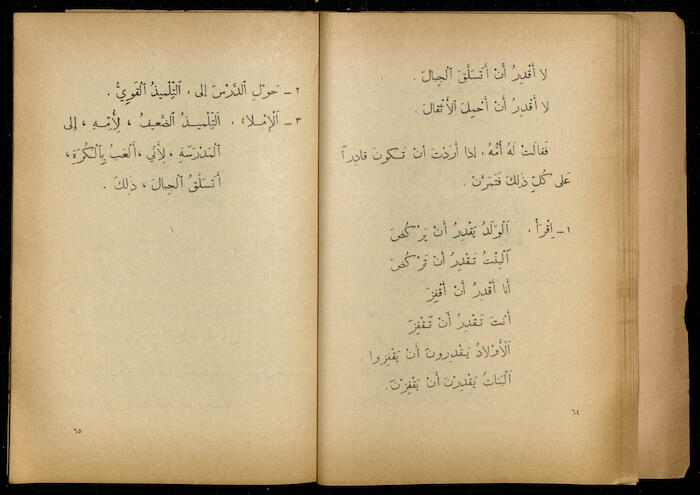 لا أَقْدِرُ أَنْ أَتَسَلَّقَ ٱلْجِبالَ .
لا أَقْدِرُ أَنْ أَحْمِلَ ٱلْأَثْقالَ .
فَقالَتْ لَهُ أُمُّهُ ، اذا أَرَدْتَ أنْ تَكونَ قادِراً
عَلى كُلِّ ذٰلِكَ فَتَمَرَّنْ .
١ ـ اِقْرَأْ ، اَلْوَلَدُ يَقْدِرُ أَنْ يَرْكُضَ
اَلْبِنْتُ تَقْدِرُ أَنْ تَرْكُضَ
أَنا أَقْدِرُ أَنْ أَقْفِزَ
أَنْتَ تَقْدِرُ أَنْ تَقْفِزَ
اَلْأَوْلادُ يَقْدِرونَ أَنْ يَقْفِزوا .
اَلْبَناتُ يَقْدِرْنَ أَنْ يَقْفِزْنَ .
٦٤
٢ ـ حَوِّلِ ٱلدَّرْسَ إلى ، اَلتِّلْميذُ ٱلْقَوِيُّ .
٣ ـ اَلْإمْلاءُ ، اَلتِّلْميـذُ ٱلضَّعيفُ ، لِأُمِّهِ ، إلى
ٱلْمَدْرَسَةِ ، لِأَنّي ، أَلْعَبُ بِٱلْكُرَةِ ،
أَتَسَلَّقُ ٱلْجِبالَ ، ذٰلِكَ .
٦٥